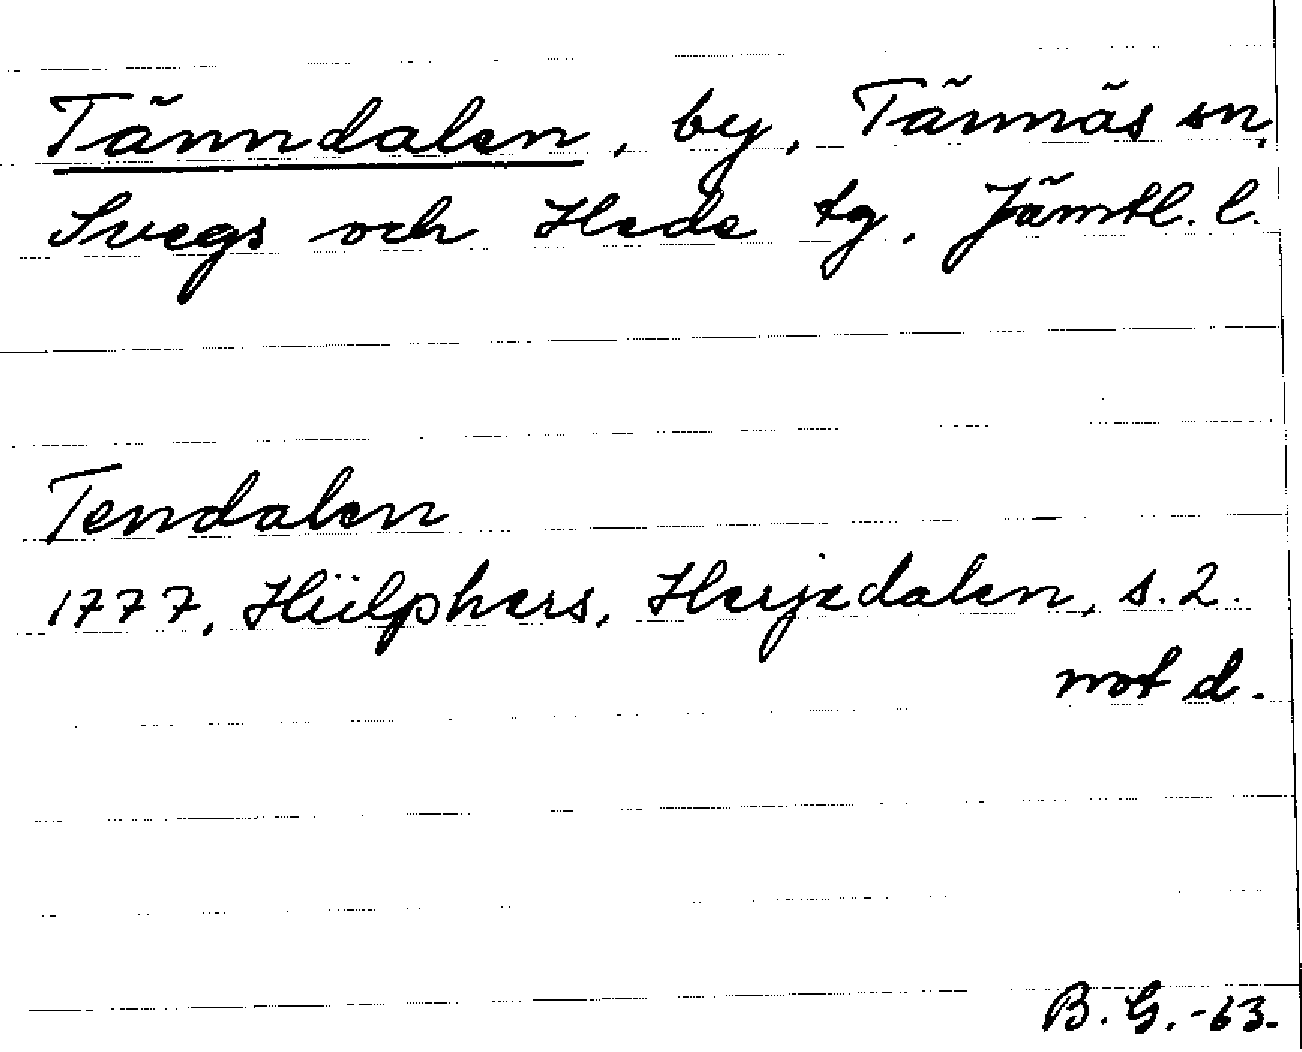 Tänndalen, by, Tännäs sn,
Svegs och Hede tg. Jämtl. l.
Tendalen
1777, Hülphers, Herjedalen, s. 2.
not d.
B. G. -63.